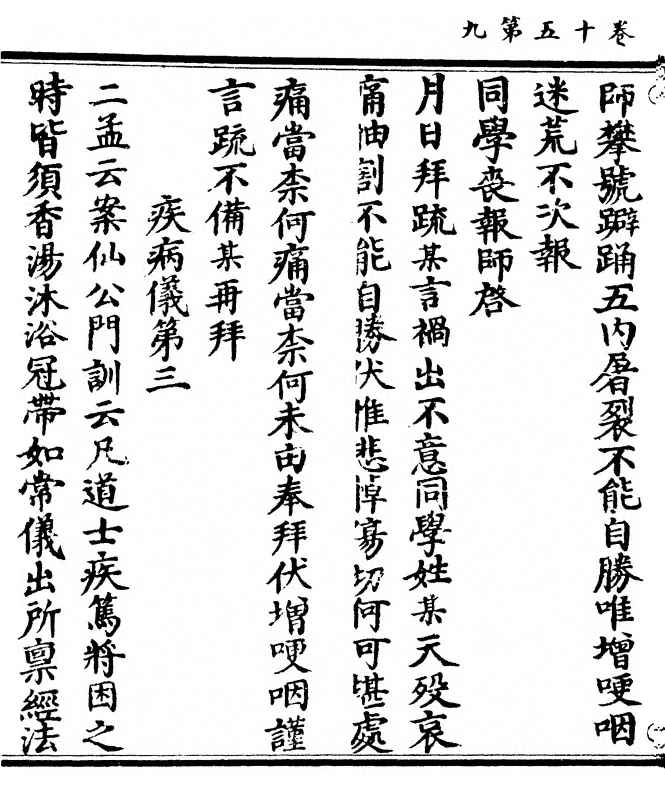 卷十五第九
師攀號躃踊五內屠裂不能自勝唯增哽咽
迷荒不次報
同學喪報師啓
月日拜疏某言禍出不意同學姓某夭殁哀
痛抽割不能自勝伏惟悲悼寡切何可堪處
痛當柰何痛當柰何未由奉拜伏增哽咽謹
言疏不備某再拜
疾病儀第三
二孟云案仙公門訓云凡道士疾篤將困之
時皆須香湯沐浴冠帶如常儀出所禀經法